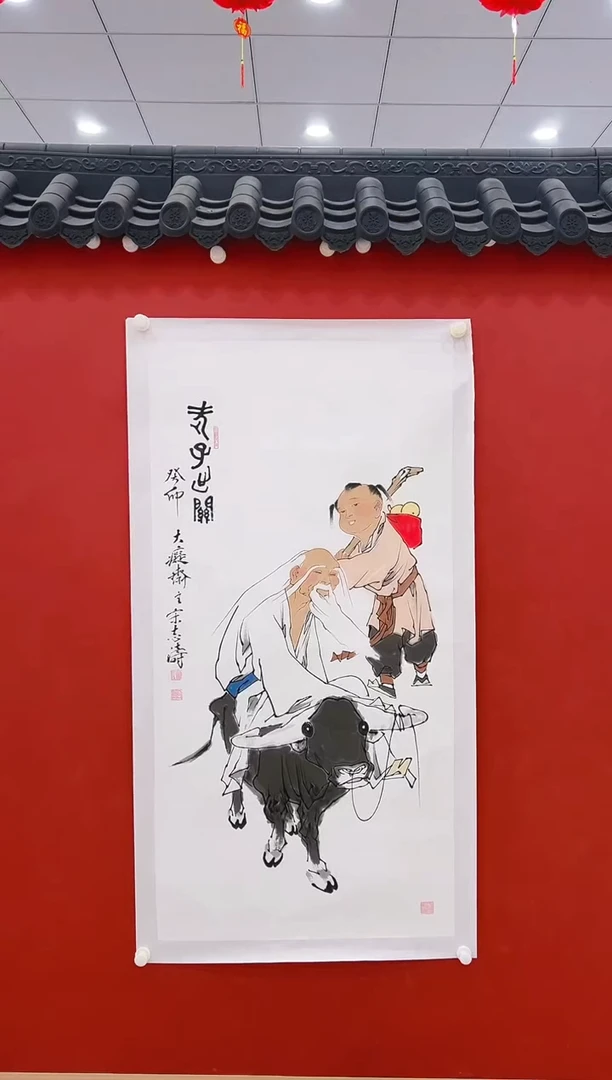 老子出關
癸卯
大癡齋主宋志濤
福